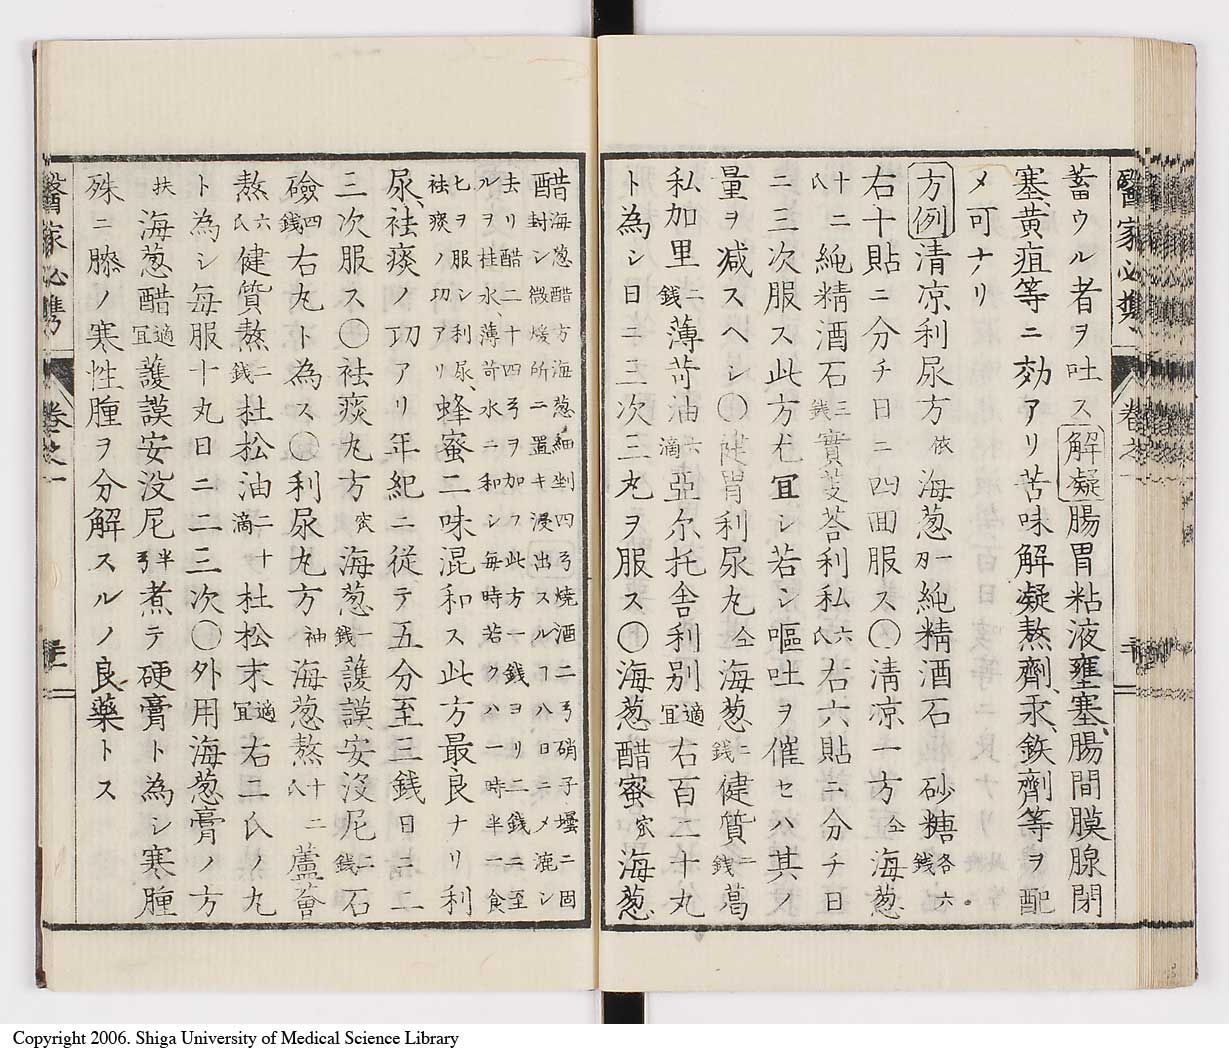 蓄ウル者ヲ吐ス解凝腸胃粘液壅塞、腸間膜腺閉
塞、黄疸等ニ効アリ苦味解凝熬劑、汞、鉄劑等ヲ配
メ可ナリ
方例清凉利尿方依海葱一刃純精酒石 砂糖各六銭
右十貼ニ分チ日ニ四回服ス〇清凉一方仝海葱
十二氏純精酒石三銭實芰荅利私六氏右六貼ニ分チ日
ニ三次服ス此方尤宜シ若シ嘔吐ヲ催セハ其ノ
量ヲ减スヘシ〇健胃利尿丸仝海葱二銭健質二銭葛
私加里二銭薄苛油六滴亞尓托舎利別適宜右百二十丸
ト為シ日ニ三次三丸ヲ服ス〇海葱醋蜜宻海葱
醫家必携
卷之一
醋海葱醋方海葱細剉四弓焼酒二弓硝子壜ニ固
封シ微煖所ニ置キ浸出スル丁八日ニメ漉シ
去リ醋二十四弓ヲ加フ此方一銭ヨリ二銭ニ至
ルヲ桂水、薄苛水ニ和シ毎時若クハ一時半一食
匕ヲ服シ利尿、
祛痰ノ功アリ蜂蜜二味混和ス此方最良ナリ利
尿、祛痰ノ功アリ年紀ニ従テ五分至三銭日ニ二
三次服ス〇祛痰丸方宻海葱一銭護謨安没尼二銭石
礆四銭右丸ト為ス〇利尿丸方袖海葱熬十二氏蘆薈
熬六氏健質熬二銭杜松油二十滴杜松末適宜右二氏ノ丸
ト為シ毎服十丸日ニ二三次〇外用海葱膏ノ方
扶海葱醋適宜護謨安没尼半弓煮テ硬膏ト為シ寒腫
殊ニ膝ノ寒性腫ヲ分解スルノ良藥トス
醫家必携
卷之一
Copyright 2006. Shiga University of Medical Science Library